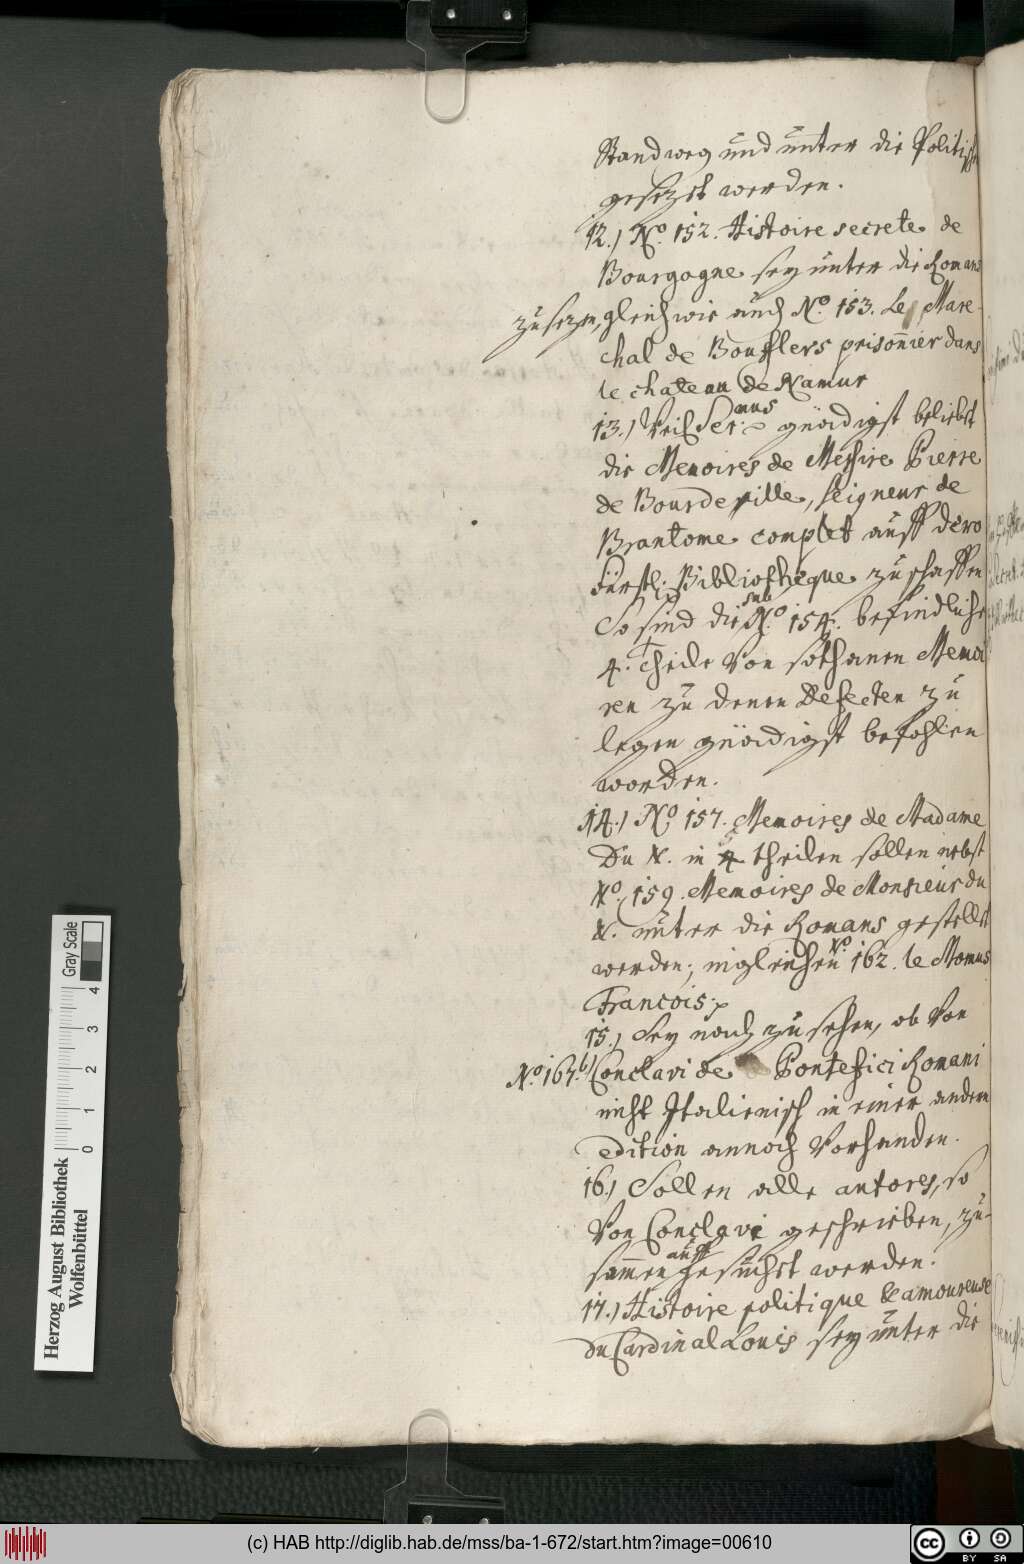 Standweg und unter die Politisch
gesezet werden.
12.) No. 152. Histoire secrete de
Bourgogne sey unter die Romans
zu sezen, gleich wie auch No. 153. Le Mare-
chal de Boufflers prisonnier dans
le chateau de Namur
13.) Weil Ser.mus gnädigst beliebet
die Memoires de Messire Pierre
de Bourdeille, seigneur de
Brantome complet auff dero
Fürstl: Bibliotheque zu schaffen
So sind die sub No. 154. befindliche
4. Theile von sothanen Memoi
ren zu denen Defecten zu
legen gnädigst befohlen
worden.
14.) No. 157. Memoires de Madame
Du N. in 4 theilen sollen nebst
No. 159. Memoires de Monsieur du
N. unter die Romans gestellet
werden; ingleichen No. 162. le Momus
Francois.
15.) Sey noch zu sehen, ob von
No. 167.b) Conclavi de Pontefici Romani
nicht Italienisch in einer andern
Edition annoch vorhanden.
16.) Sollen alle autores, so
von Conclavi geschrieben, zu-
sammen auff gesuchet werden.
17.) Histoire politique & amoureuse
du Cardinal Louis sey unter die
Herzog August Bibliothek
Wolfenbüttel
0 1 2 3 4
Gray Scale
(c) HAB http://diglib.hab.de/mss/ba-1-672/start.htm?image=00610
cc BY SA